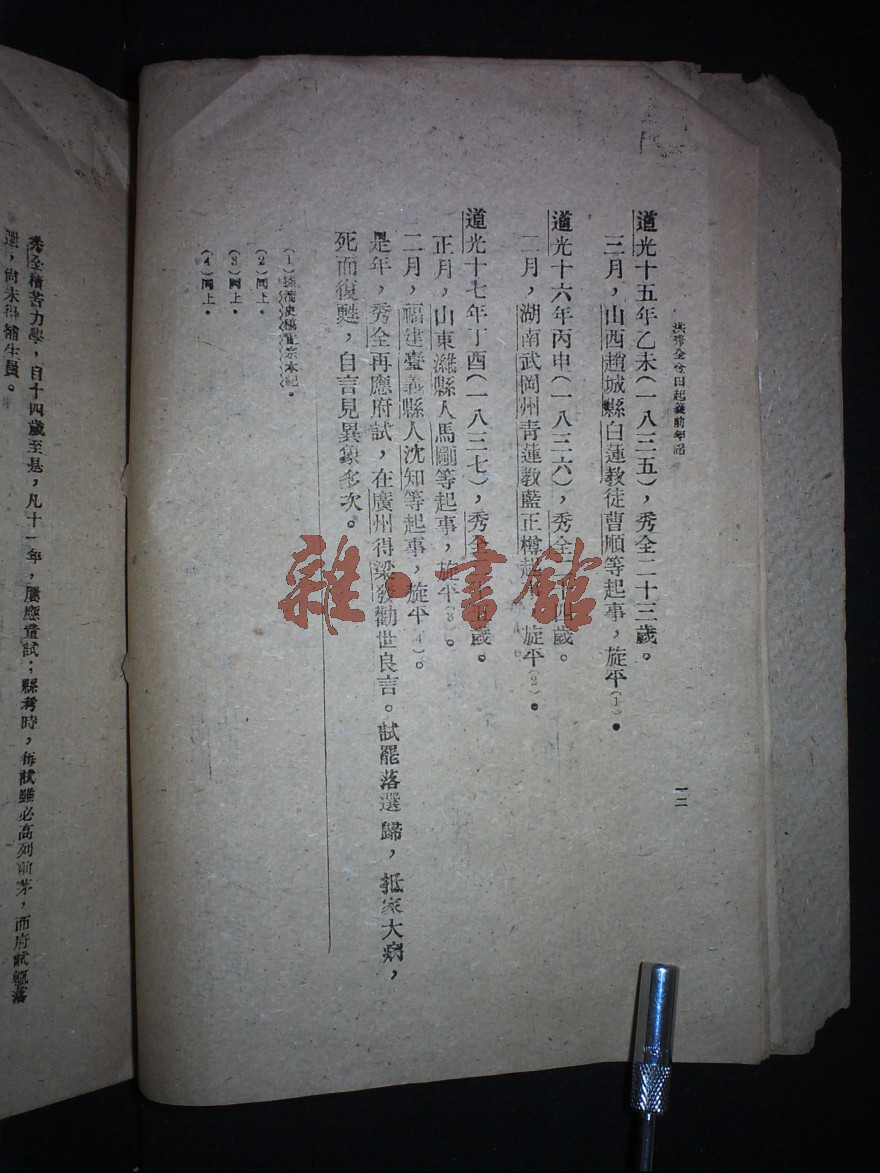 洪秀全金田起義前年譜
一二
道光十五年乙未(一八三五),秀全二十三歲。
三月,山西趙城縣白蓮教徒曹順等起事,旋平(1)。
道光十六年丙申(一八三六),秀全 十四歲。
二月,湖南武岡州青蓮教藍正樽起 ,旋平(2)。
道光十七年丁酉(一八三七),秀全 十五歲。
正月,山東濰縣人馬剛等起事,旋平(3)。
二月,福建臺義縣人沈知等起事,旋平(4)。
是年,秀全再應府試,在廣州得梁發勸世良言。試罷落選歸,抵家大病,
死而復甦,自言見異象多次。
(1) 史稿宣宗本紀。
(2)同上。
(3)同上。
(4)同上。
秀全積苦力學,自十四歲至是,凡十一年,屢應童試;縣考時,每試雖必高列前茅,而府試輒落
選,尚未得補生員。
雜·書館